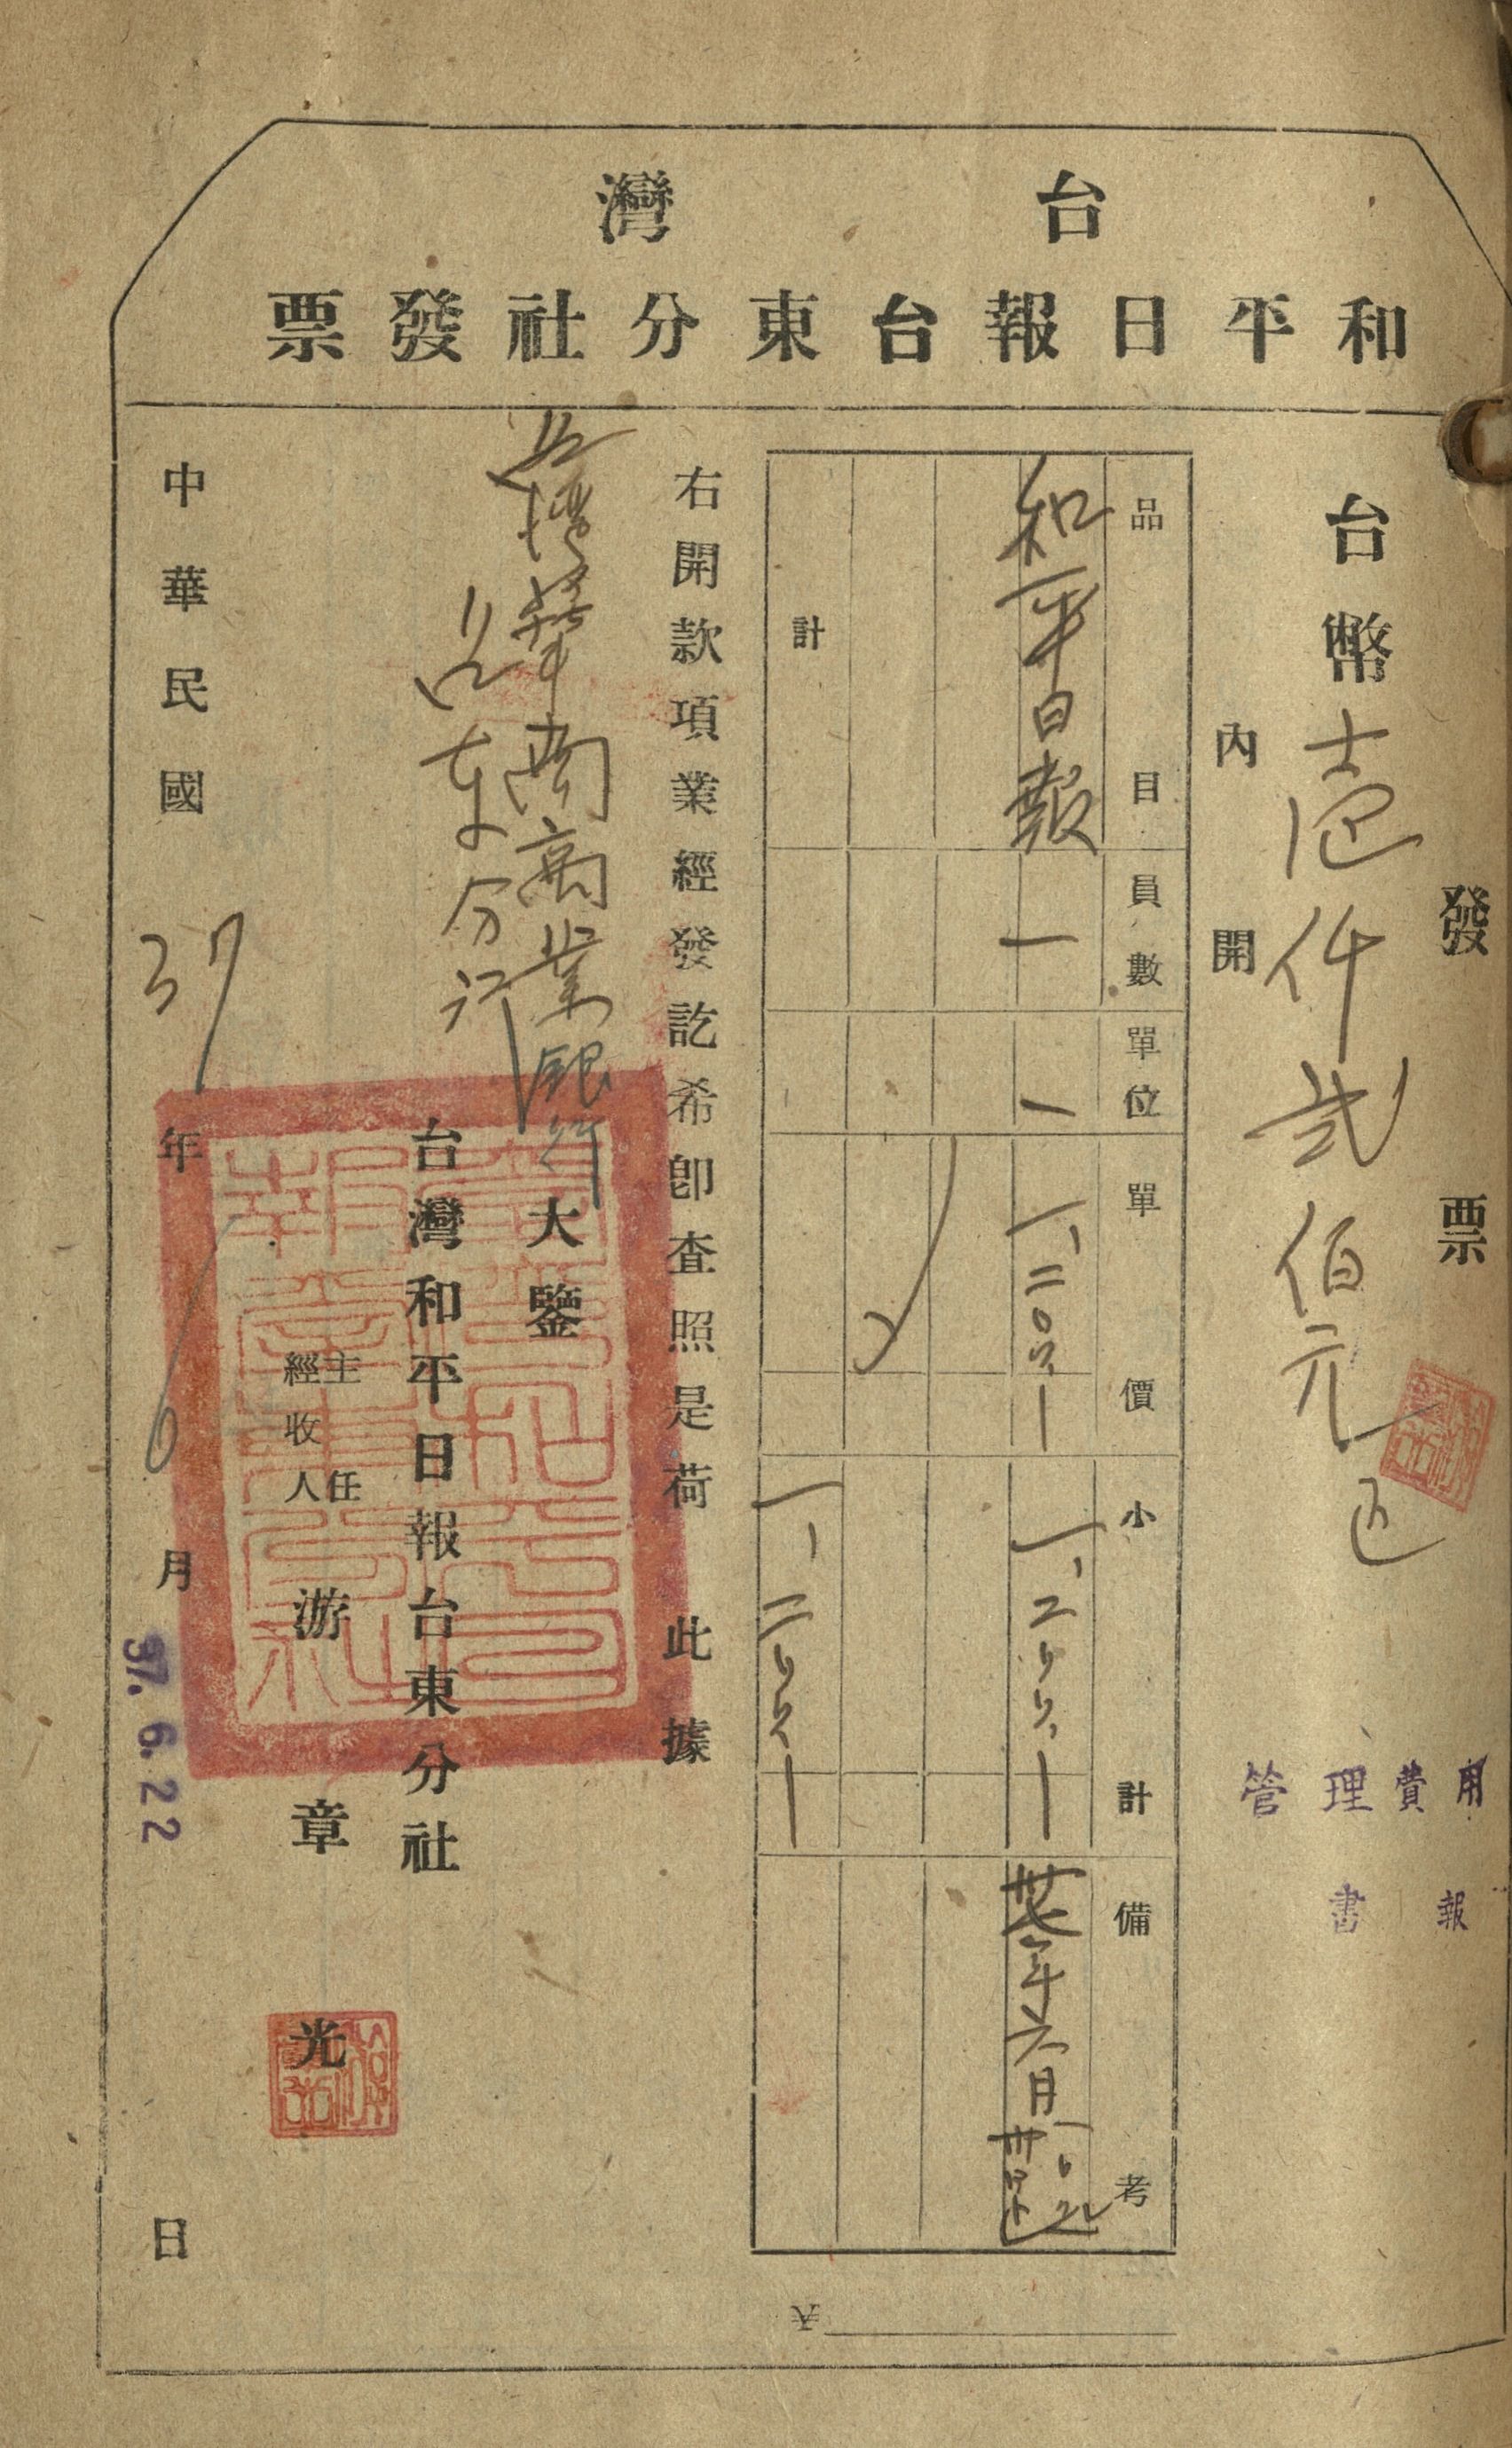 台灣
和平日報台東分社發票
發票
台幣壹仟弍佰元正
內開
管理費用
書報
品目 員數 單位 單價 小計 備考
和平日報 一 1 一、二〇〇.— 一、二〇〇.— 卅七年六月
計 一、二〇〇.—
右開款項業經發訖希卽查照是荷 此據
台灣華南商業銀行 大鑒
台東分行
台灣和平日報台東分社
主任
經收人
游章光
中華民國37年6月 日
37.6.22
¥